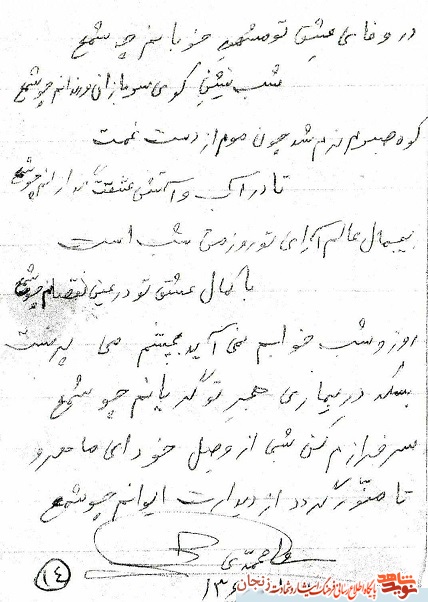 در وفای عشق تو مشهور خوبانم چو شمع
شب نشین کوی سربازان و رندانم چو شمع
کوه صبرم نرم شد چون موم از دست غمت
تا در آب و آتش عشقت گدازانم چو شمع
بیجمال عالم آرای تو روز من شب است
با کمال عشق تو در عین نقصانم چو شمع
روز و شب خوابم نمی آید بچشم می پرست
بسکه در بیماری هجر تو گریانم چو شمع
سرفرازم کن شبی از وصل خود ای ماهرو
تا منور گردد از دیدارت ایوانم چو شمع
۱۳۶
۱۴
نوید شاهد
پایگاه اطلاع رسانی فرهنگ ایثار و شهادت زنجان